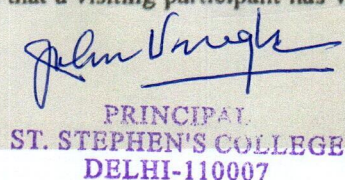 that a visiting participant has
John Varughese
PRINCIPAL
ST. STEPHEN'S COLLEGE
DELHI-110007